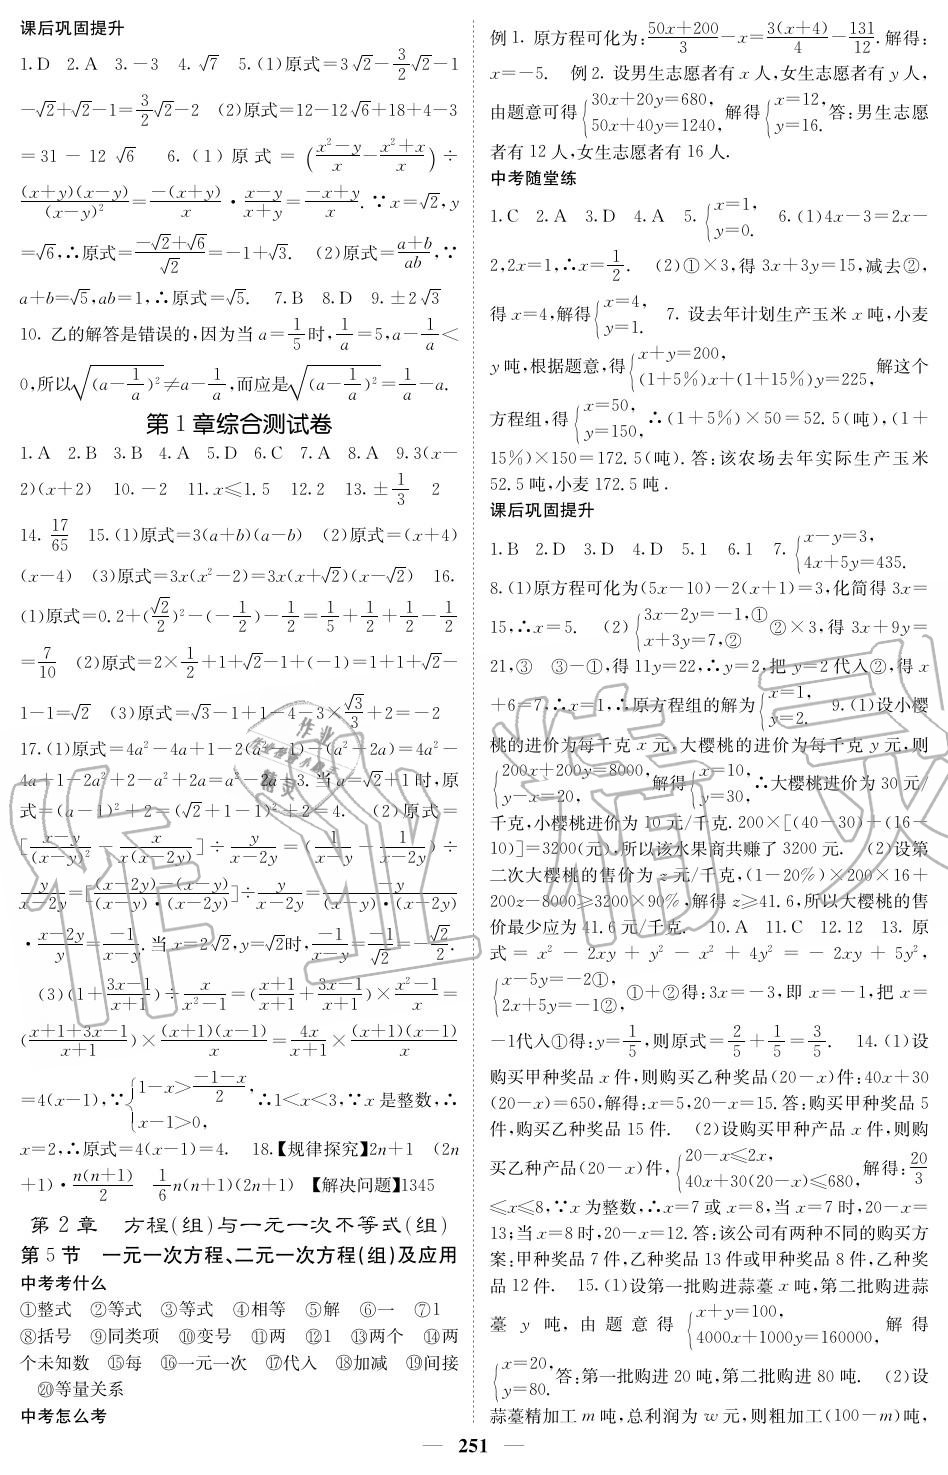 课后巩固提升
1.D 2.A 3.-3 4.√7 5.(1)原式=3√2-3/2√2-1
-√2+√2-1=3/2√2-2 (2)原式=12-12√6+18+4-3
=31-12√6 6.(1)原式=((x²-y)/x-(x²+x)/x)÷
(x+y)(x-y)/(x-y)²=-(x+y)/x·(x-y)/(x+y)=(-x+y)/x.∵x=√2,y
=√6,∴原式=(-√2+√6)/√2=-1+√3. (2)原式=(a+b)/ab,∵
a+b=√5,ab=1,∴原式=√5. 7.B 8.D 9.±2√3
10. 乙的解答是错误的,因为当a=1/5时,1/a=5,a-1/a<
0,所以√(a-1/a)²≠a-1/a,而应是√(a-1/a)²=1/a-a.
第1章综合测试卷
1.A 2.B 3.B 4.A 5.D 6.C 7.A 8.A 9.3(x-
2)(x+2) 10.-2 11.x≤1.5 12.2 13.±1/3 2
14.17/65 15.(1)原式=3(a+b)(a-b) (2)原式=(x+4)
(x-4) (3)原式=3x(x²-2)=3x(x+√2)(x-√2) 16.
(1)原式=0.2+(√2/2)²-(-1/2)-1/2=1/5+1/2+1/2-1/2
=7/10 (2)原式=2×1/2+1+√2-1+(-1)=1+1+√2-
1-1=√2 (3)原式=√3-1+1-4-3×√3/3+2=-2
17.(1)原式=4a²-4a+1-2(a²-1)-(a²+2a)=4a²-
4a+1-2a²+2-a²+2a=a²-2a+3.当a=√2+1时,原
式=(a-1)²+2=(√2+1-1)²+2=4. (2)原式=
[(x-y)/(x-y)²-x/x(x-2y)]÷y/(x-2y)=(1/(x-y)-1/(x-2y))÷
y/(x-2y)=[((x-2y)-(x-y))/(x-y)·(x-2y)]÷y/(x-2y)=-y/(x-y)·(x-2y)
·(x-2y)/y=-1/(x-y).当x=2√2,y=√2时,-1/(x-y)=-1/√2=-√2/2.
(3)(1+(3x-1)/(x+1))÷x/(x²-1)=((x+1)/(x+1)+(3x-1)/(x+1))×(x²-1)/x=
((x+1+3x-1)/(x+1))×(x+1)(x-1)/x=4x/(x+1)×(x+1)(x-1)/x
=4(x-1),∵{1-x>(-1-x)/2, x-1>0, ∴1<x<3,∵x是整数,∴
x=2,∴原式=4(x-1)=4. 18.【规律探究】2n+1 (2n
+1)·n(n+1)/2 1/6n(n+1)(2n+1) 【解决问题】1345
第2章 方程(组)与一元一次不等式(组)
第5节 一元一次方程、二元一次方程(组)及应用
中考考什么
①整式 ②等式 ③等式 ④相等 ⑤解 ⑥一 ⑦1
⑧括号 ⑨同类项 ⑩变号 ⑪两 ⑫1 ⑬两个 ⑭两
个未知数 ⑮每 ⑯一元一次 ⑰代入 ⑱加减 ⑲间接
⑳等量关系
中考怎么考
例1. 原方程可化为:(50x+200)/3-x=3(x+4)/4-131/12.解得:
x=-5. 例2. 设男生志愿者有x人,女生志愿者有y人,
由题意可得{30x+20y=680, 50x+40y=1240, 解得{x=12, y=16. 答:男生志愿
者有12人,女生志愿者有16人.
中考随堂练
1.C 2.A 3.D 4.A 5.{x=1, y=0. 6.(1)4x-3=2x-
2,2x=1,∴x=1/2. (2)①×3,得3x+3y=15,减去②,
得x=4,解得{x=4, y=1. 7. 设去年计划生产玉米x吨,小麦
y吨,根据题意,得{x+y=200, (1+5%)x+(1+15%)y=225, 解这个
方程组,得{x=50, y=150, ∴(1+5%)×50=52.5(吨),(1+
15%)×150=172.5(吨).答:该农场去年实际生产玉米
52.5吨,小麦172.5吨.
课后巩固提升
1.B 2.D 3.D 4.D 5.1 6.1 7.{x-y=3, 4x+5y=435.
8.(1)原方程可化为(5x-10)-2(x+1)=3,化简得3x=
15,∴x=5. (2){3x-2y=-1,① x+3y=7,② ②×3,得3x+9y=
21,③ ③-①,得11y=22,∴y=2,把y=2代入②,得x
+6=7,∴x=1,∴原方程组的解为{x=1, y=2. 9.(1)设小樱
桃的进价为每千克x元,大樱桃的进价为每千克y元,则
{200x+200y=8000, y-x=20, 解得{x=10, y=30, ∴大樱桃进价为30元/
千克,小樱桃进价为10元/千克.200×[(40-30)+(16-
10)]=3200(元),所以该水果商共赚了3200元. (2)设第
二次大樱桃的售价为z元/千克,(1-20%)×200×16+
200z-8000≥3200×90%,解得z≥41.6,所以大樱桃的售
价最少应为41.6元/千克. 10.A 11.C 12.12 13. 原
式=x²-2xy+y²-x²+4y²=-2xy+5y²,
{x-5y=-2①, 2x+5y=-1②, ①+②得:3x=-3,即x=-1,把x=
-1代入①得:y=1/5,则原式=2/5+1/5=3/5. 14.(1)设
购买甲种奖品x件,则购买乙种奖品(20-x)件:40x+30
(20-x)=650,解得:x=5,20-x=15.答:购买甲种奖品5
件,购买乙种奖品15件. (2)设购买甲种产品x件,则购
买乙种产品(20-x)件,{20-x≤2x, 40x+30(20-x)≤680, 解得:20/3
≤x≤8,∵x为整数,∴x=7或x=8,当x=7时,20-x=
13;当x=8时,20-x=12.答:该公司有两种不同的购买方
案:甲种奖品7件,乙种奖品13件或甲种奖品8件,乙种奖
品12件. 15.(1)设第一批购进蒜薹x吨,第二批购进蒜
薹y吨,由题意得{x+y=100, 4000x+1000y=160000, 解得
{x=20, y=80. 答:第一批购进20吨,第二批购进80吨. (2)设
蒜薹精加工m吨,总利润为w元,则粗加工(100-m)吨,
— 251 —
作业精灵